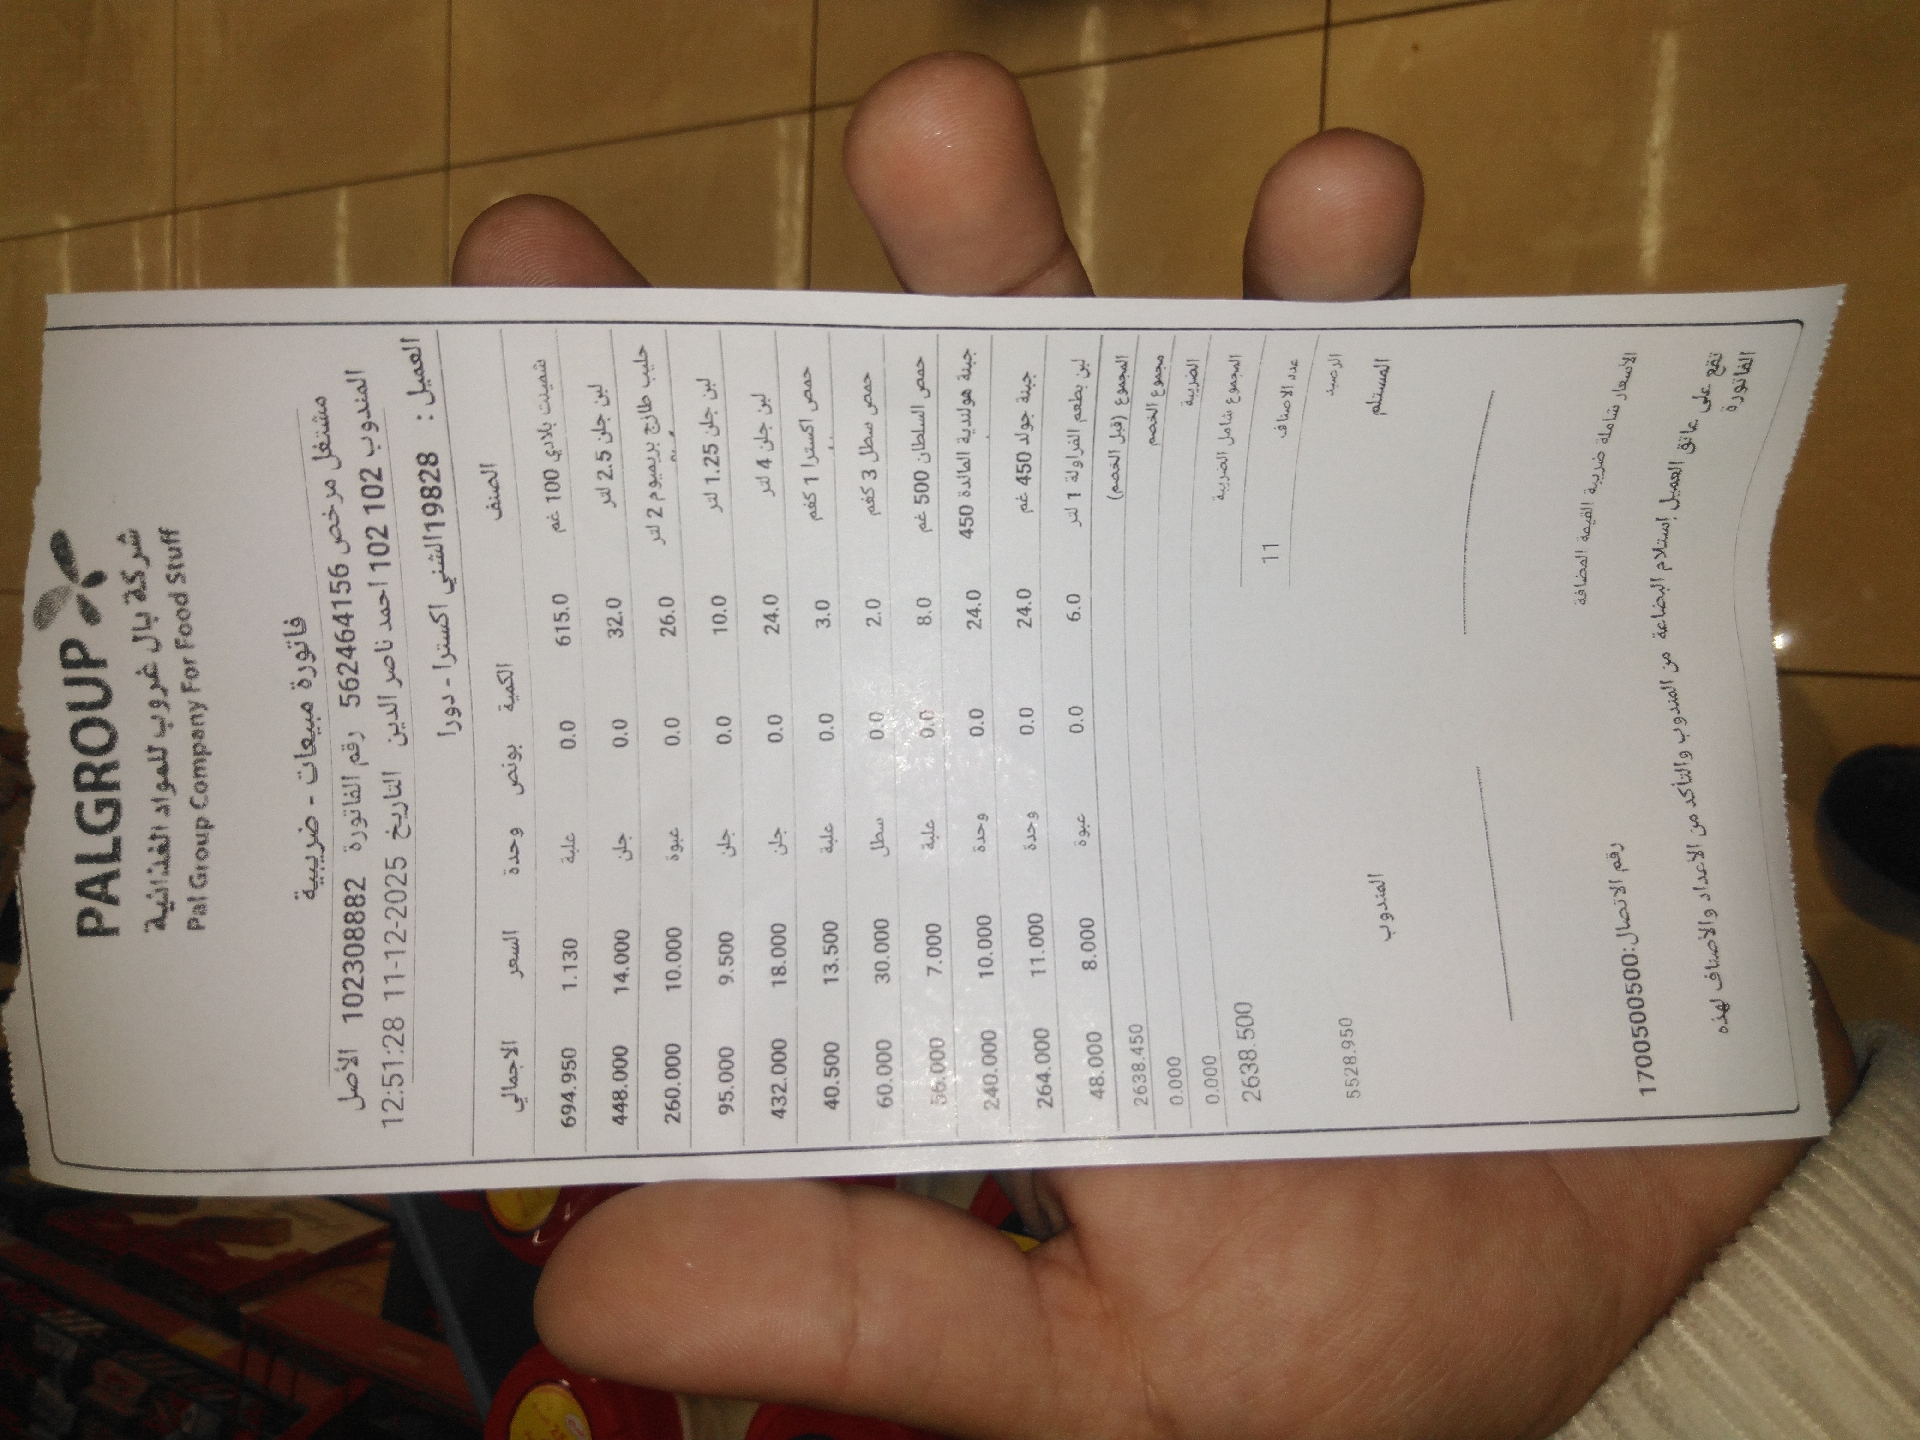 PALGROUP
شركة بال غروب للمواد الغذائية
Pal Group Company For Food Stuff
فاتورة مبيعات - ضريبية
مشتغل مرخص 562464156 رقم الفاتورة 102308882 الأصل
المندوب 102 102 احمد ناصر الدين التاريخ 2025-12-11 12:51:28
العميل : 19828الشني اكسترا - دورا
الصنف الكمية بونص وحدة السعر الاجمالي
شمينت بلادي 100 غم 615.0 0.0 علبة 1.130 694.950
لبن جلن 2.5 لتر 32.0 0.0 جلن 14.000 448.000
حليب طازج بريميوم 2 لتر 26.0 0.0 عبوة 10.000 260.000
لبن جلن 1.25 لتر 10.0 0.0 جلن 9.500 95.000
لبن جلن 4 لتر 24.0 0.0 جلن 18.000 432.000
حمص اكسترا 1 كغم 3.0 0.0 علبة 13.500 40.500
حمص سطل 3 كغم 2.0 0.0 سطل 30.000 60.000
حمص السلطان 500 غم 8.0 0.0 علبة 7.000 56.000
جبنة هولندية المائدة 450 24.0 0.0 وحدة 10.000 240.000
جبنة جولد 450 غم 24.0 0.0 وحدة 11.000 264.000
لبن بطعم الفراولة 1 لتر 6.0 0.0 عبوة 8.000 48.000
المجموع (قبل الخصم) 2638.450
مجموع الخصم 0.000
الضريبة 0.000
المجموع شامل الضريبة 2638.500
عدد الاصناف 11
الرصيد 5528.950
المستلم المندوب
الاسعار شاملة ضريبة القيمة المضافة
رقم الاتصال:1700500500
تقع على عاتق العميل إستلام البضاعة من المندوب والتأكد من الاعداد والأصناف لهذه
الفاتورة